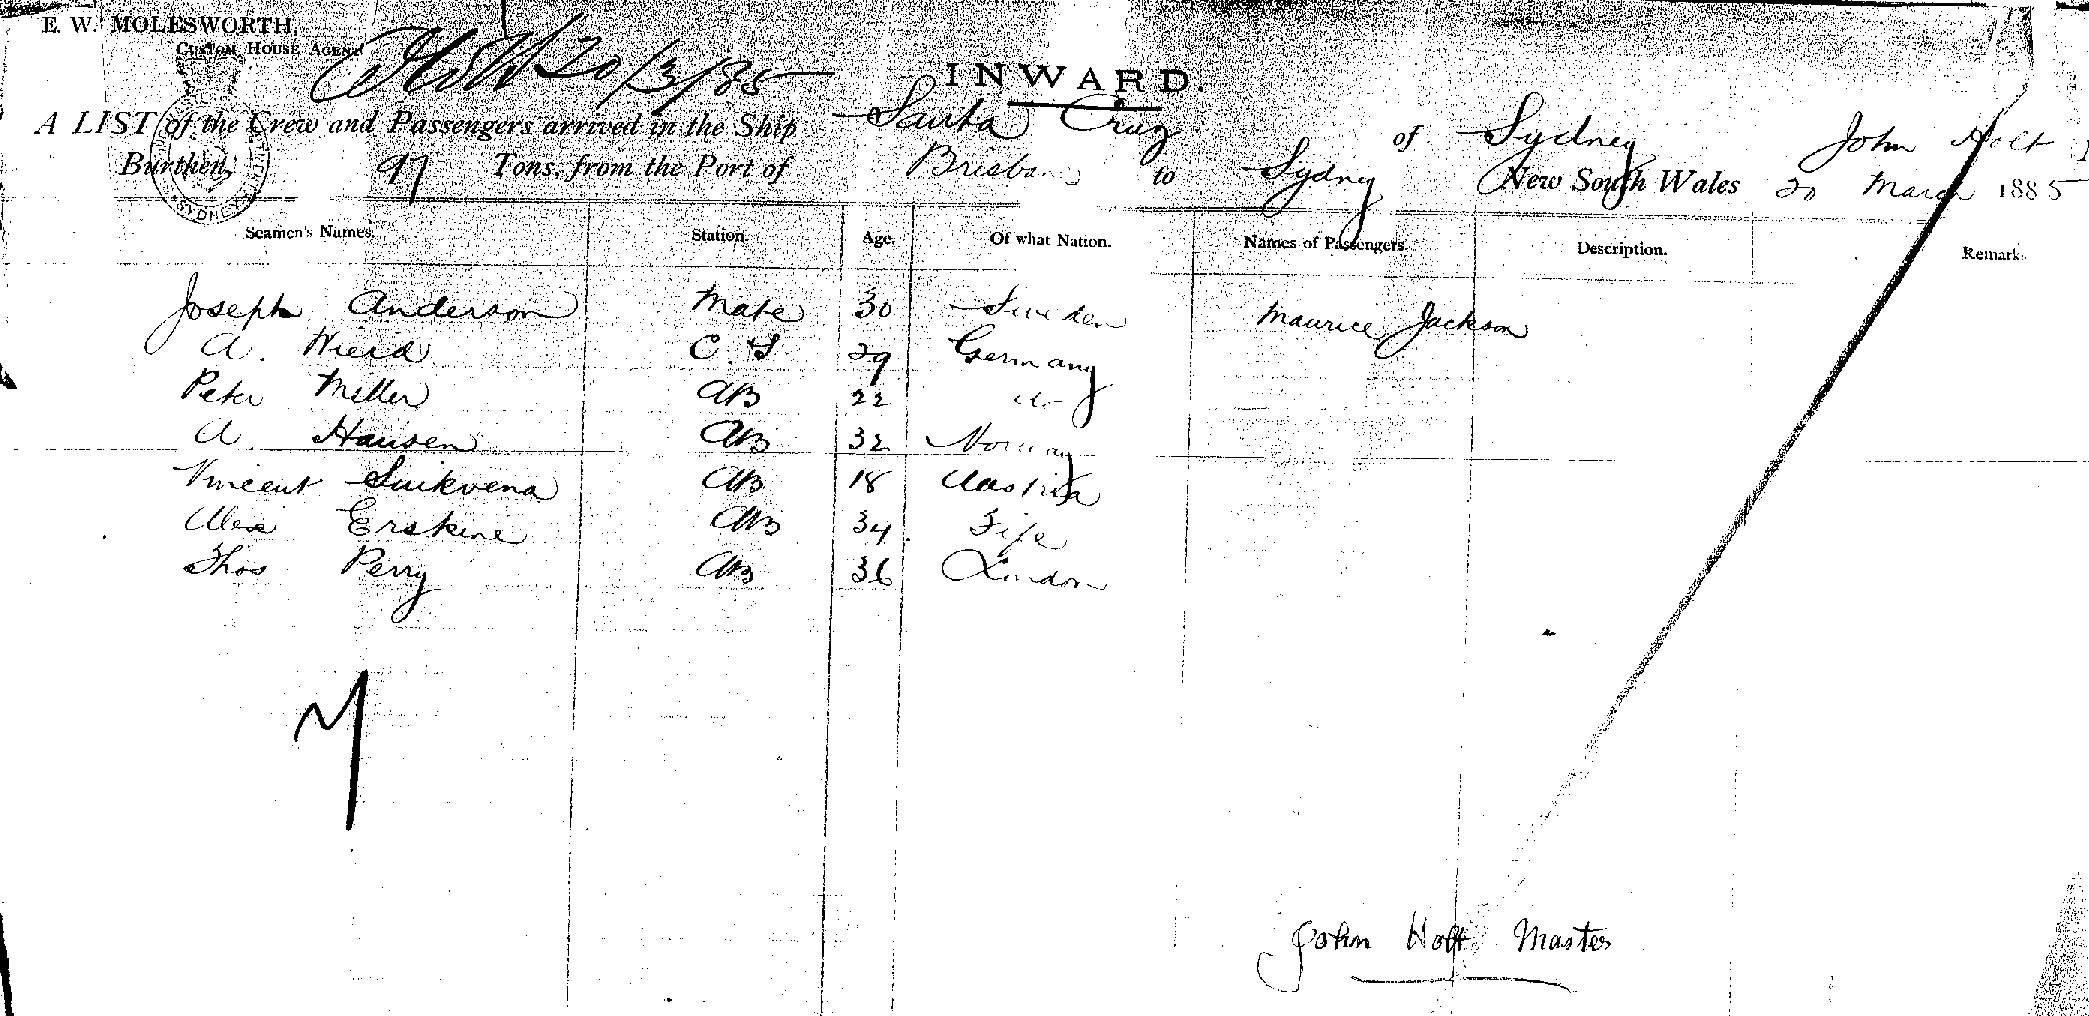 E. W. MOLESWORTH,
CUSTOM HOUSE AGENT
20/3/85
INWARD.
A LIST of the Crew and Passengers arrived in the Ship Santa Cruz of Sydney John Holt
Burthen 97 Tons, from the Port of Brisbane to Sydney New South Wales 20 March 1885
Seamen's Names. Station. Age. Of what Nation. Names of Passengers. Description. Remark
Joseph Anderson Mate 30 Sweden Maurice Jackson
A. C. S 29 Germany
Peter Miller AB 22 do
A Hansen AB 32 Norway
Vincent AB 18 Austria
Alex Erskine AB 34 Fife
Thos Perry AB 36 London
John Holt Master